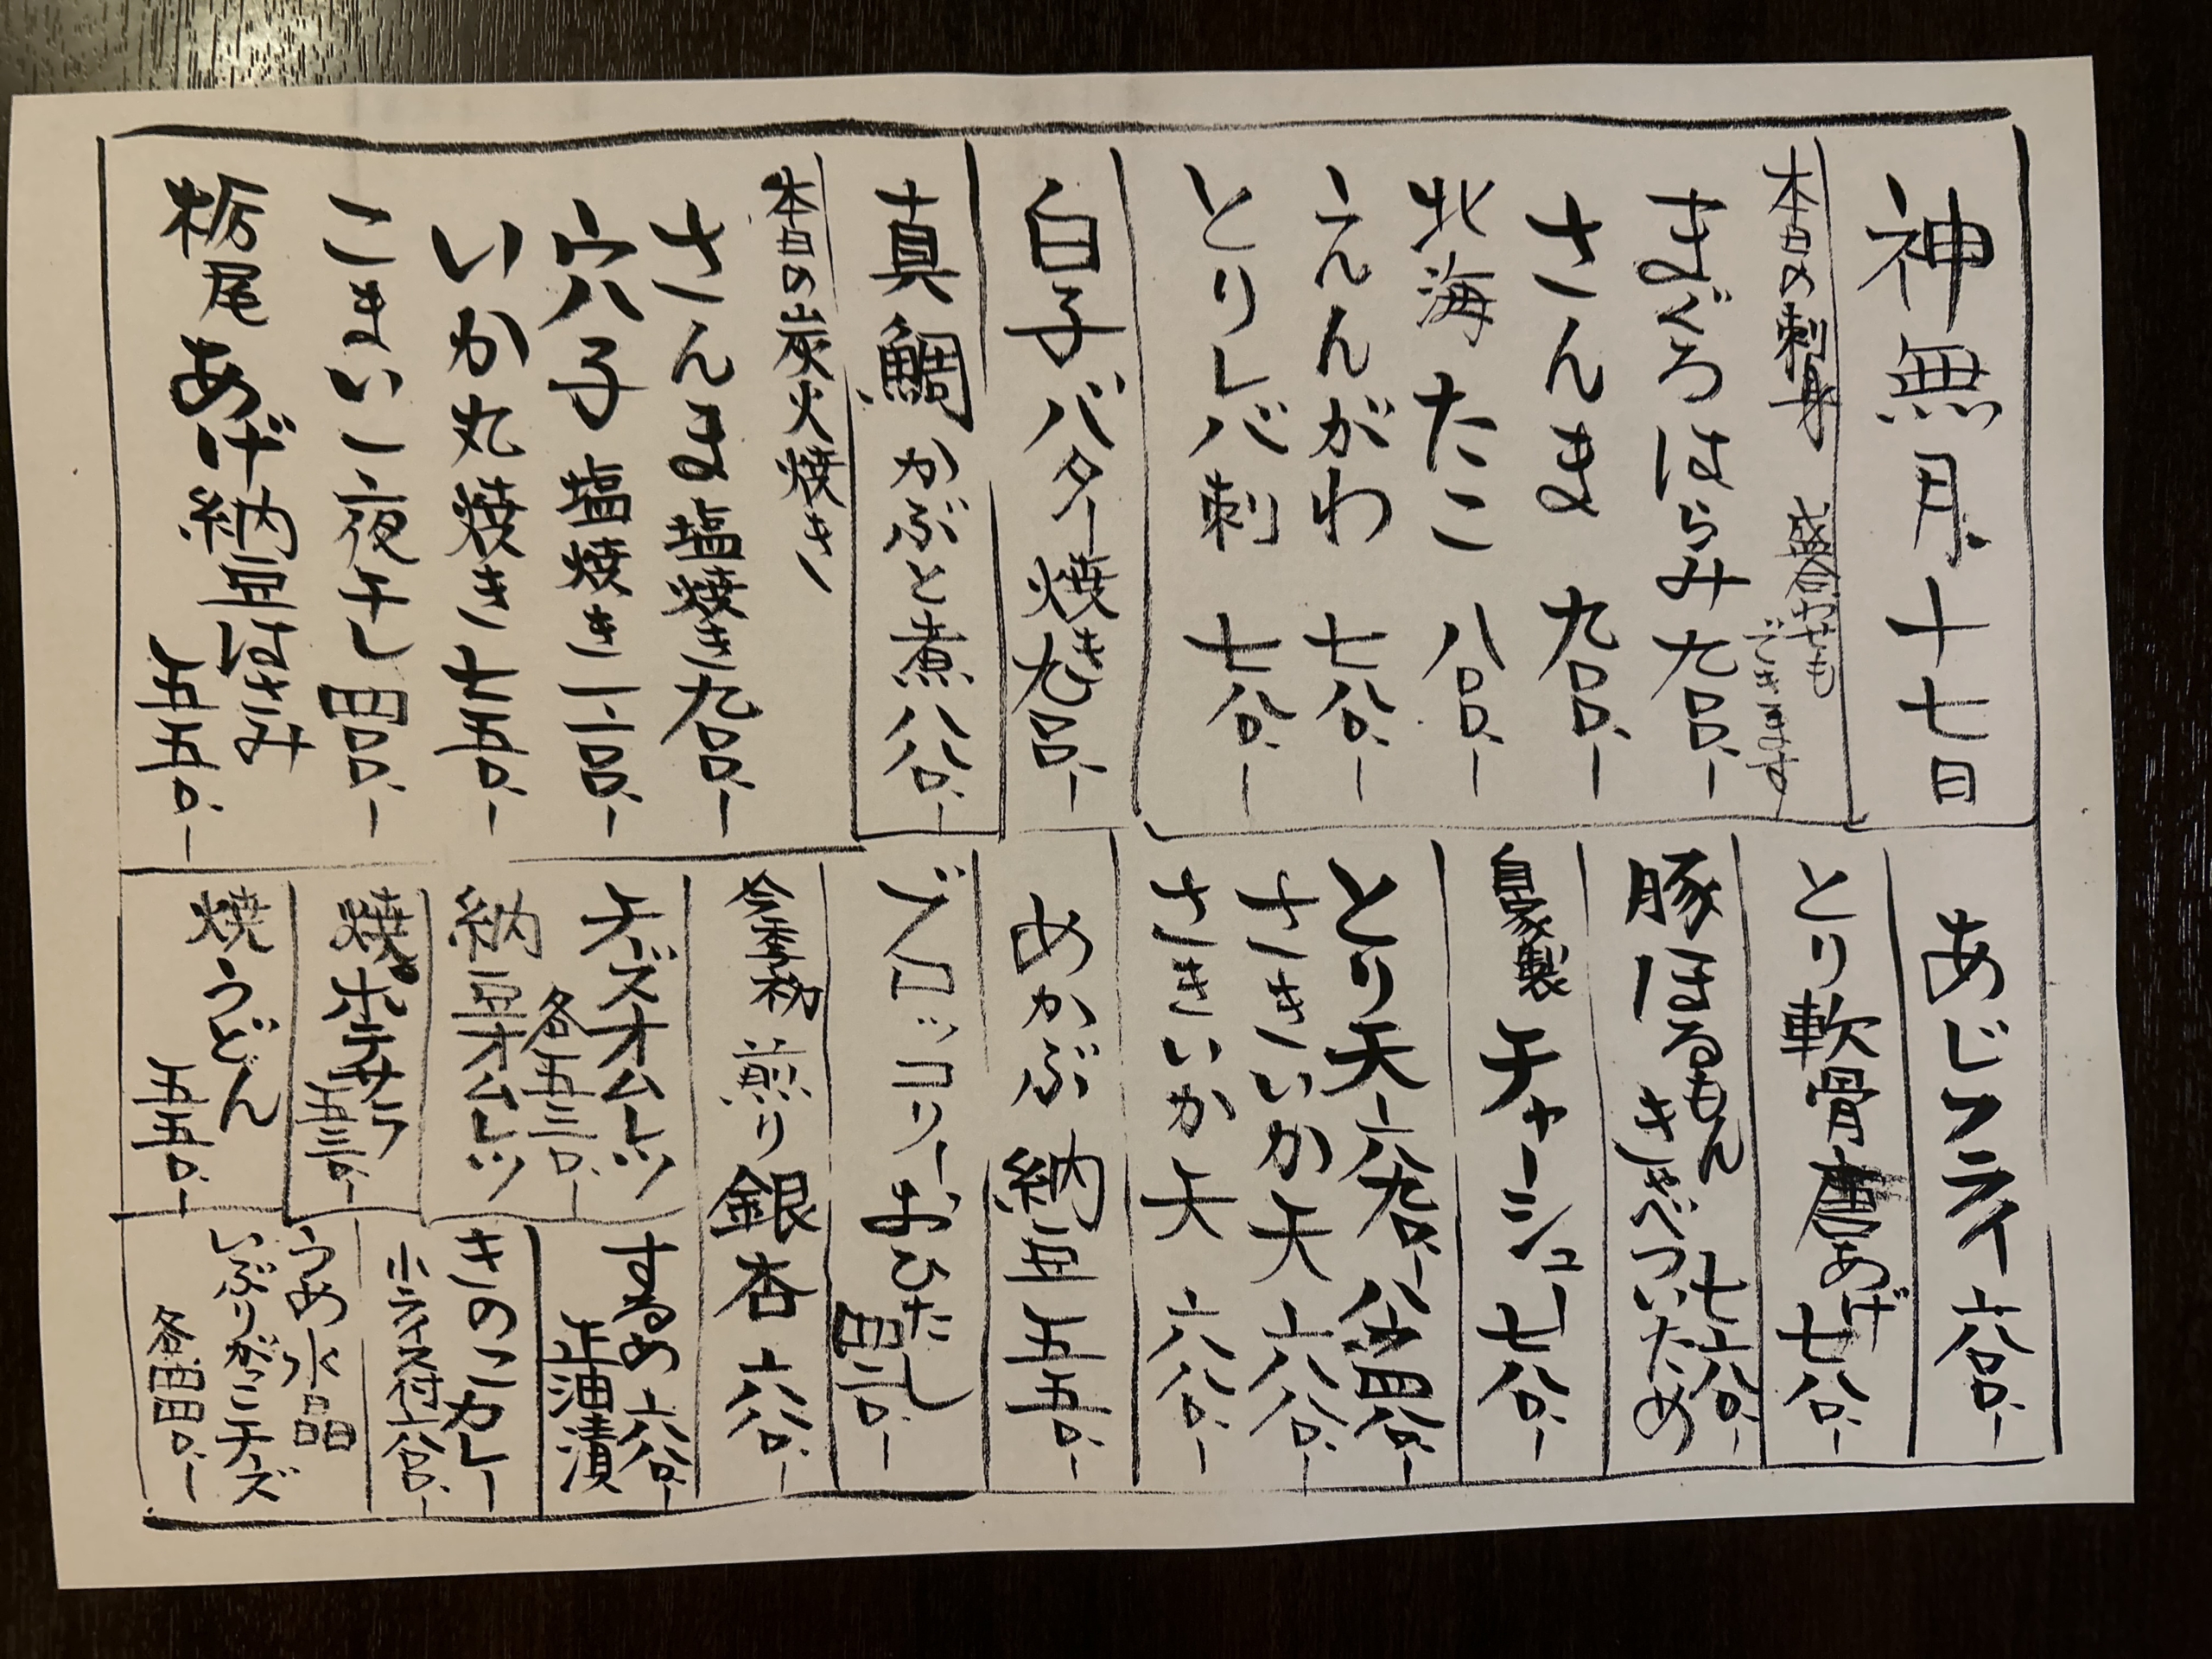 神無月 十七日
本日の刺身 盛合わせも
できます
まぐろはらみ 九〇〇.-
さんま 九〇〇.-
北海たこ 八〇〇.-
えんがわ 七八〇.-
とりレバ刺 七八〇.-
白子バター焼き 九〇〇.-
真鯛かぶと煮 八八〇.-
本日の炭火焼き
さんま塩焼き 九〇〇.-
穴子塩焼き
いか丸焼き 七五〇.-
こまい一夜干し 四〇〇.-
栃尾あげ納豆はさみ
五五〇.-
あじフライ 六八〇.-
とり軟骨唐あげ 七八〇.-
豚ほるもん 七六〇.-
きゃべついため
自家製チャーシュー 七八〇.-
とり天
さきいか天 六八〇.-
さきいか天 六八〇.-
めかぶ納豆 五五〇.-
ブロッコリーおひたし
四二〇.-
今季初 煎り銀杏 六八〇.-
チーズオムレツ
各五三〇.-
納豆オムレツ
焼ポテサラ
五三〇.-
焼うどん
五五〇.-
するめ 六八〇.-
正油漬
きのこカレー
小ライス付 六八〇.-
うめ水晶
いぶりがっこチーズ
各四四〇.-